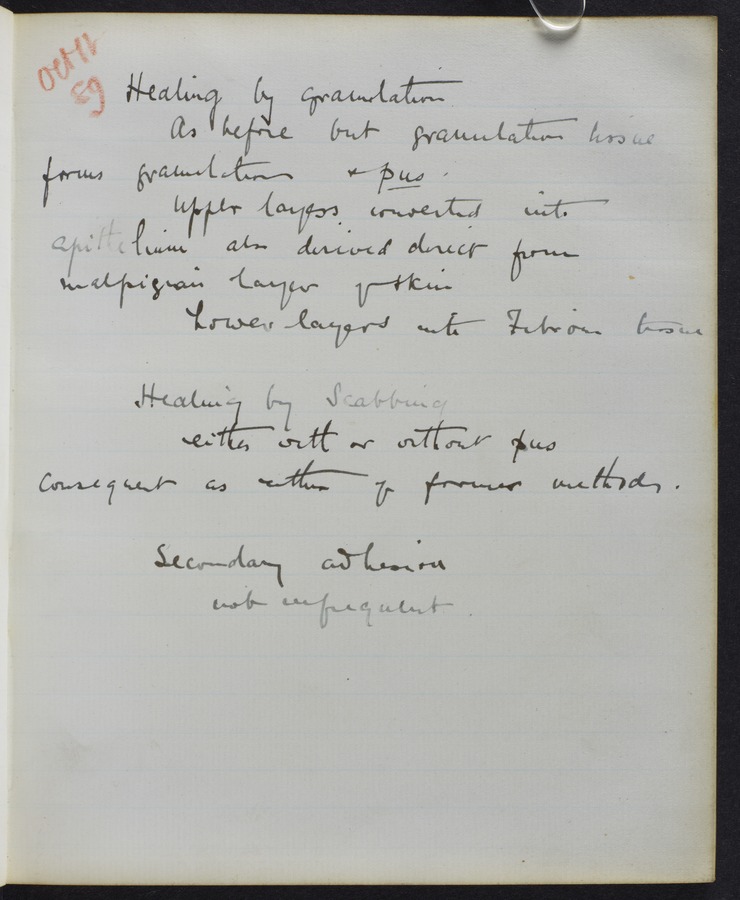 Oct 11
89
Healing by granulation
As before but granulation tissue
forms granulations & pus.
Upper layers converted into
epithelium also derived direct from
malpigian layer of skin
Lower layers into Fibrous tissue
Healing by Scabbing
either with or without pus
Consequent as either of former methods.
Secondary adhesion
not infrequent.